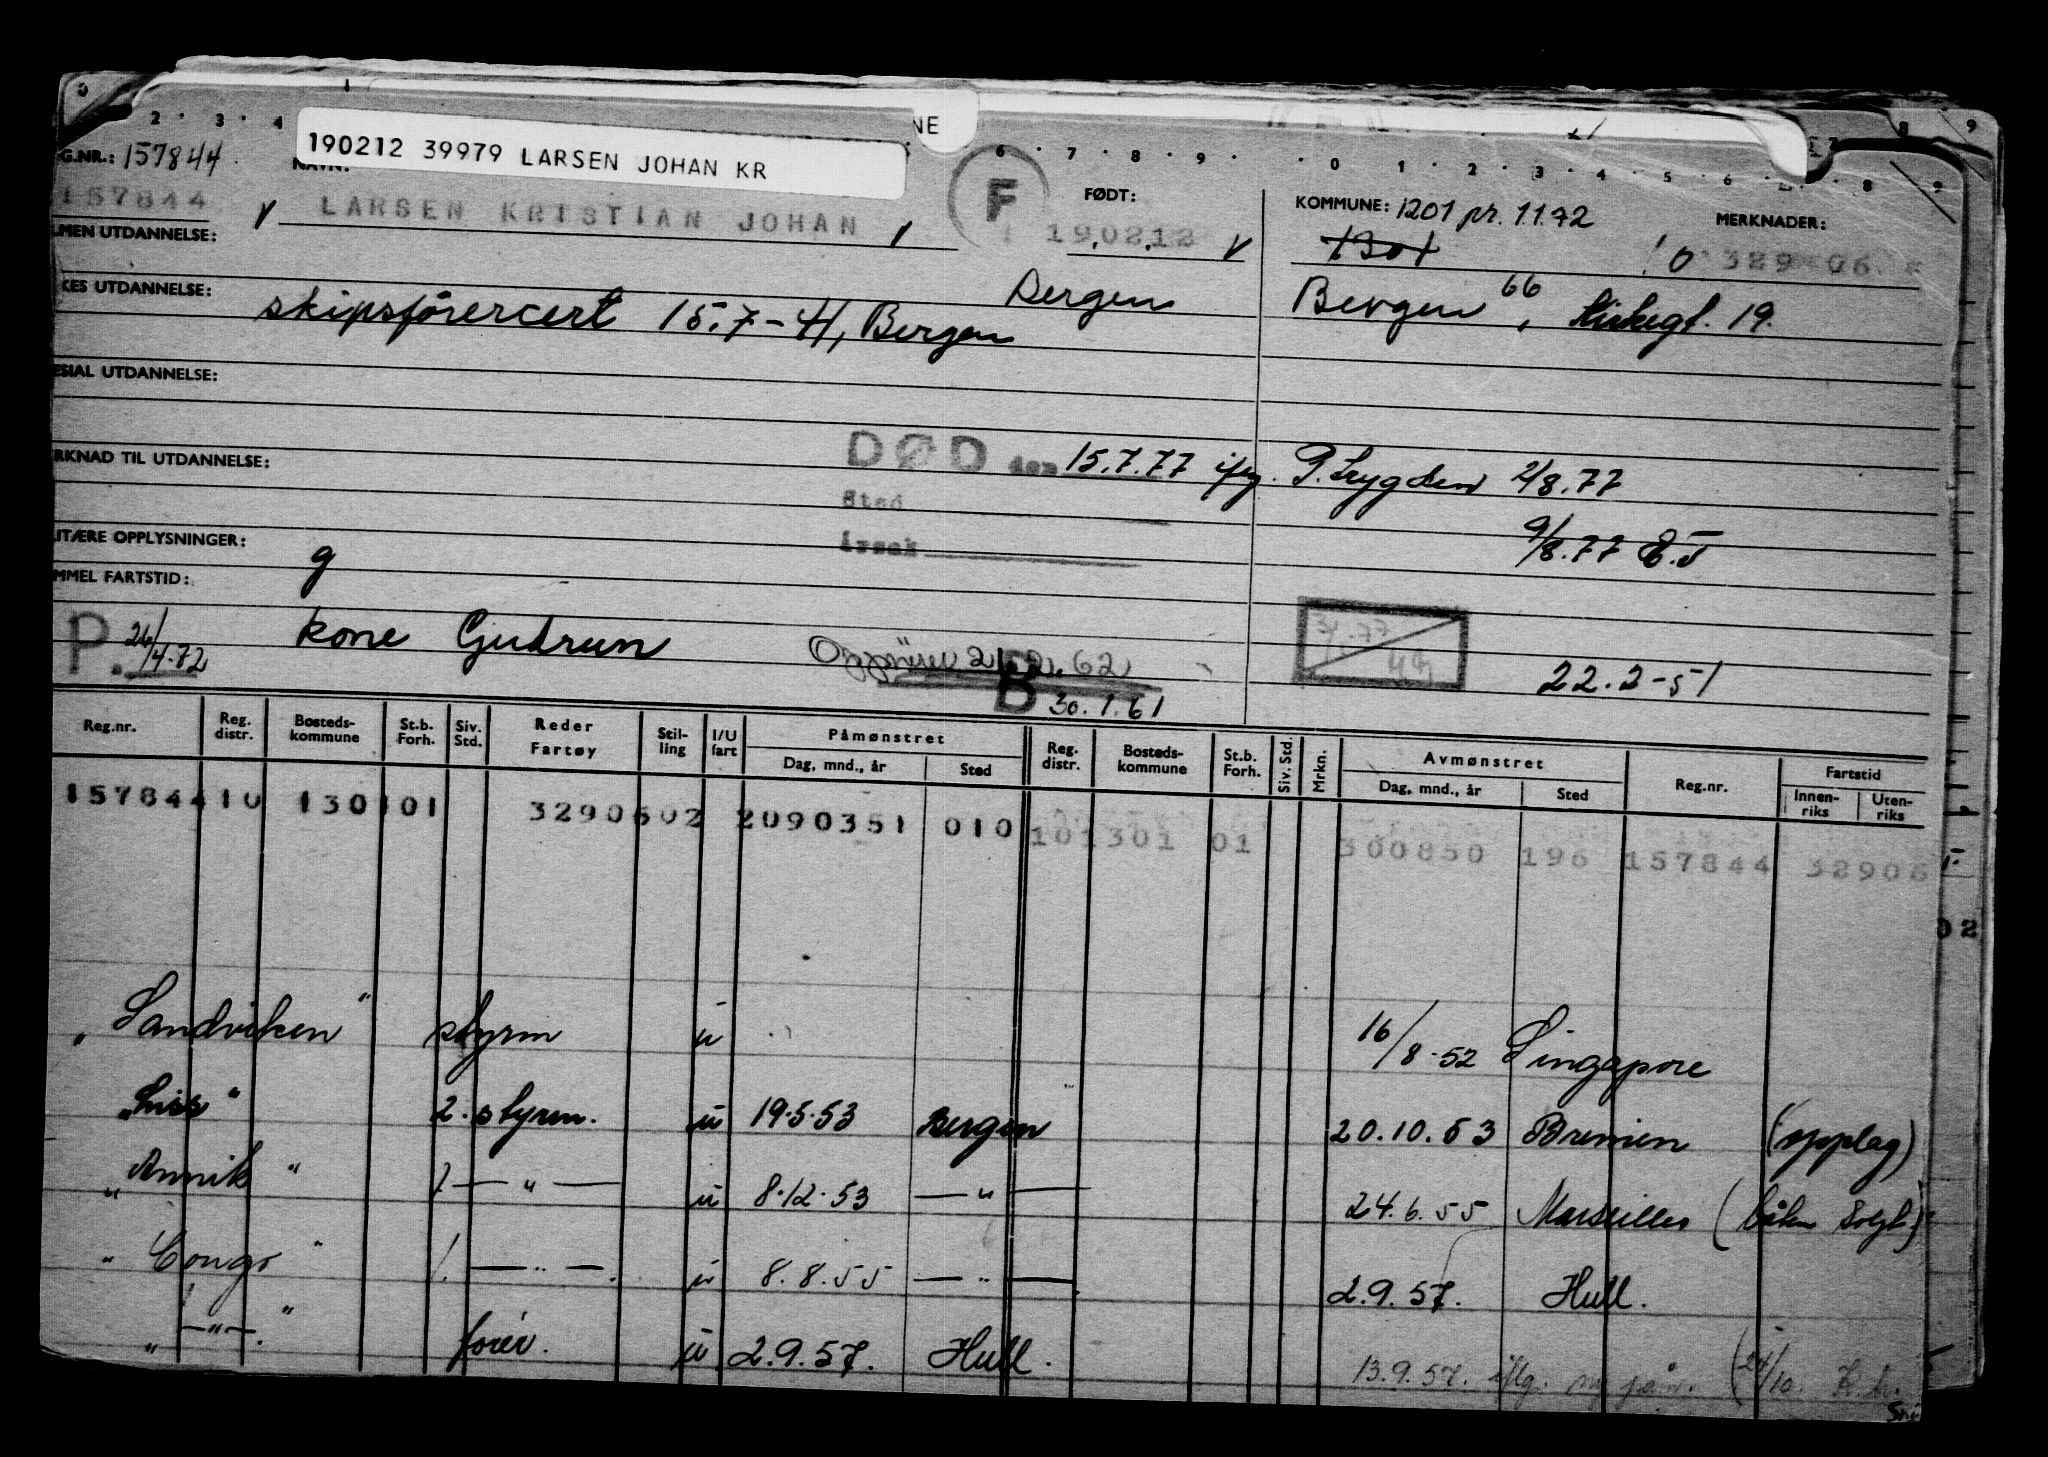 NE
190212 39979 LARSEN JOHAN KR
G.NR.: 157844
157844
LARSEN KRISTIAN JOHAN
F
FØDT:
190212
KOMMUNE: 1201 pr. 1.1.72
1301
MERKNADER:
0 329 06
LMEN UTDANNELSE:
KES UTDANNELSE: skipsførercert 15.7-41, Bergen
Bergen
Bergen 66, Kirkegt. 19.
ESIAL UTDANNELSE:
RKNAD TIL UTDANNELSE:
DØD den 15.7.77 iflg. P.trygden 2/8.77
Sted
Årsak
9/8.77 E.J
ITÆRE OPPLYSNINGER: g
MMEL FARTSTID:
P. 26/4.72
kone Gudrun
B 30.1.61
22.2-51
Reg.nr. Reg. distr. Bosteds-kommune St.b. Forh. Siv. Std. Reder Fartøy Stil-ling I/U fart Påmønstret Dag, mnd., år Sted Reg. distr. Bosteds-kommune St.b. Forh. Siv. Std. Mrkn. Avmønstret Dag, mnd., år Sted Reg.nr. Fartstid Innen-riks Uten-riks
157844 10 1301 01 3290602 2090351 010 101301 01 300850 196 157844 32906
02
„Sandviken" styrm u 16/8-52 Singapore
„Siss" 2. styrm. u 19.5.53 Bergen 20.10.53 Bremen (opplag)
„Annik" 1 — „ — u 8.12.53 — „ — 24.6.55 Marseilles (båten solgt.)
„Congo" 1. — „ — u 8.8.55 — „ — 2.9.57. Hull.
„ — „ — " fører. u 2.9.57. Hull. 13.9.57. iflg. ny på (24/10.